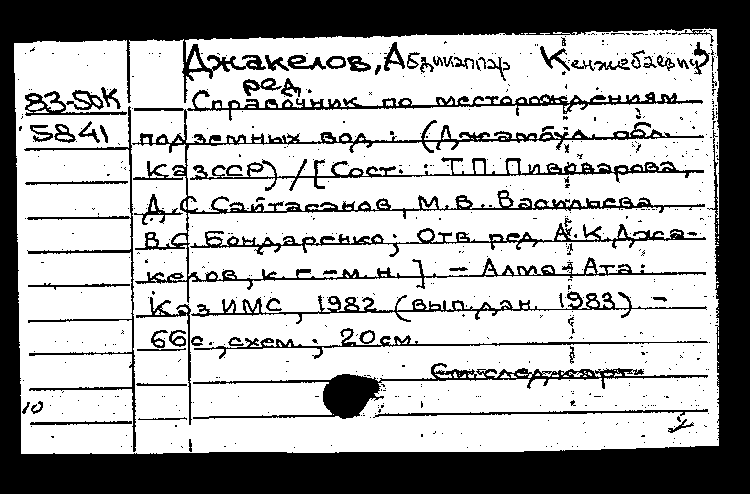 Джакелов, Абджаппар Кенжебаевич
ред.
83-50К Справочник по месторождениям
5841 подземных вод : (Джамбул. обл.
КазССР) / [Сост. : Т.П. Пивоварова,
Д.С. Сайтасанов, М.В. Васильева,
В.С. Бондаренко; Отв. ред А.К. Джа-
келов, к. г.-м. н. ]. - Алма-Ата:
КазИМС, 1982 (вып. дан. 1983) -
66с., схем. ; 20 см.
См. след. карт.
10